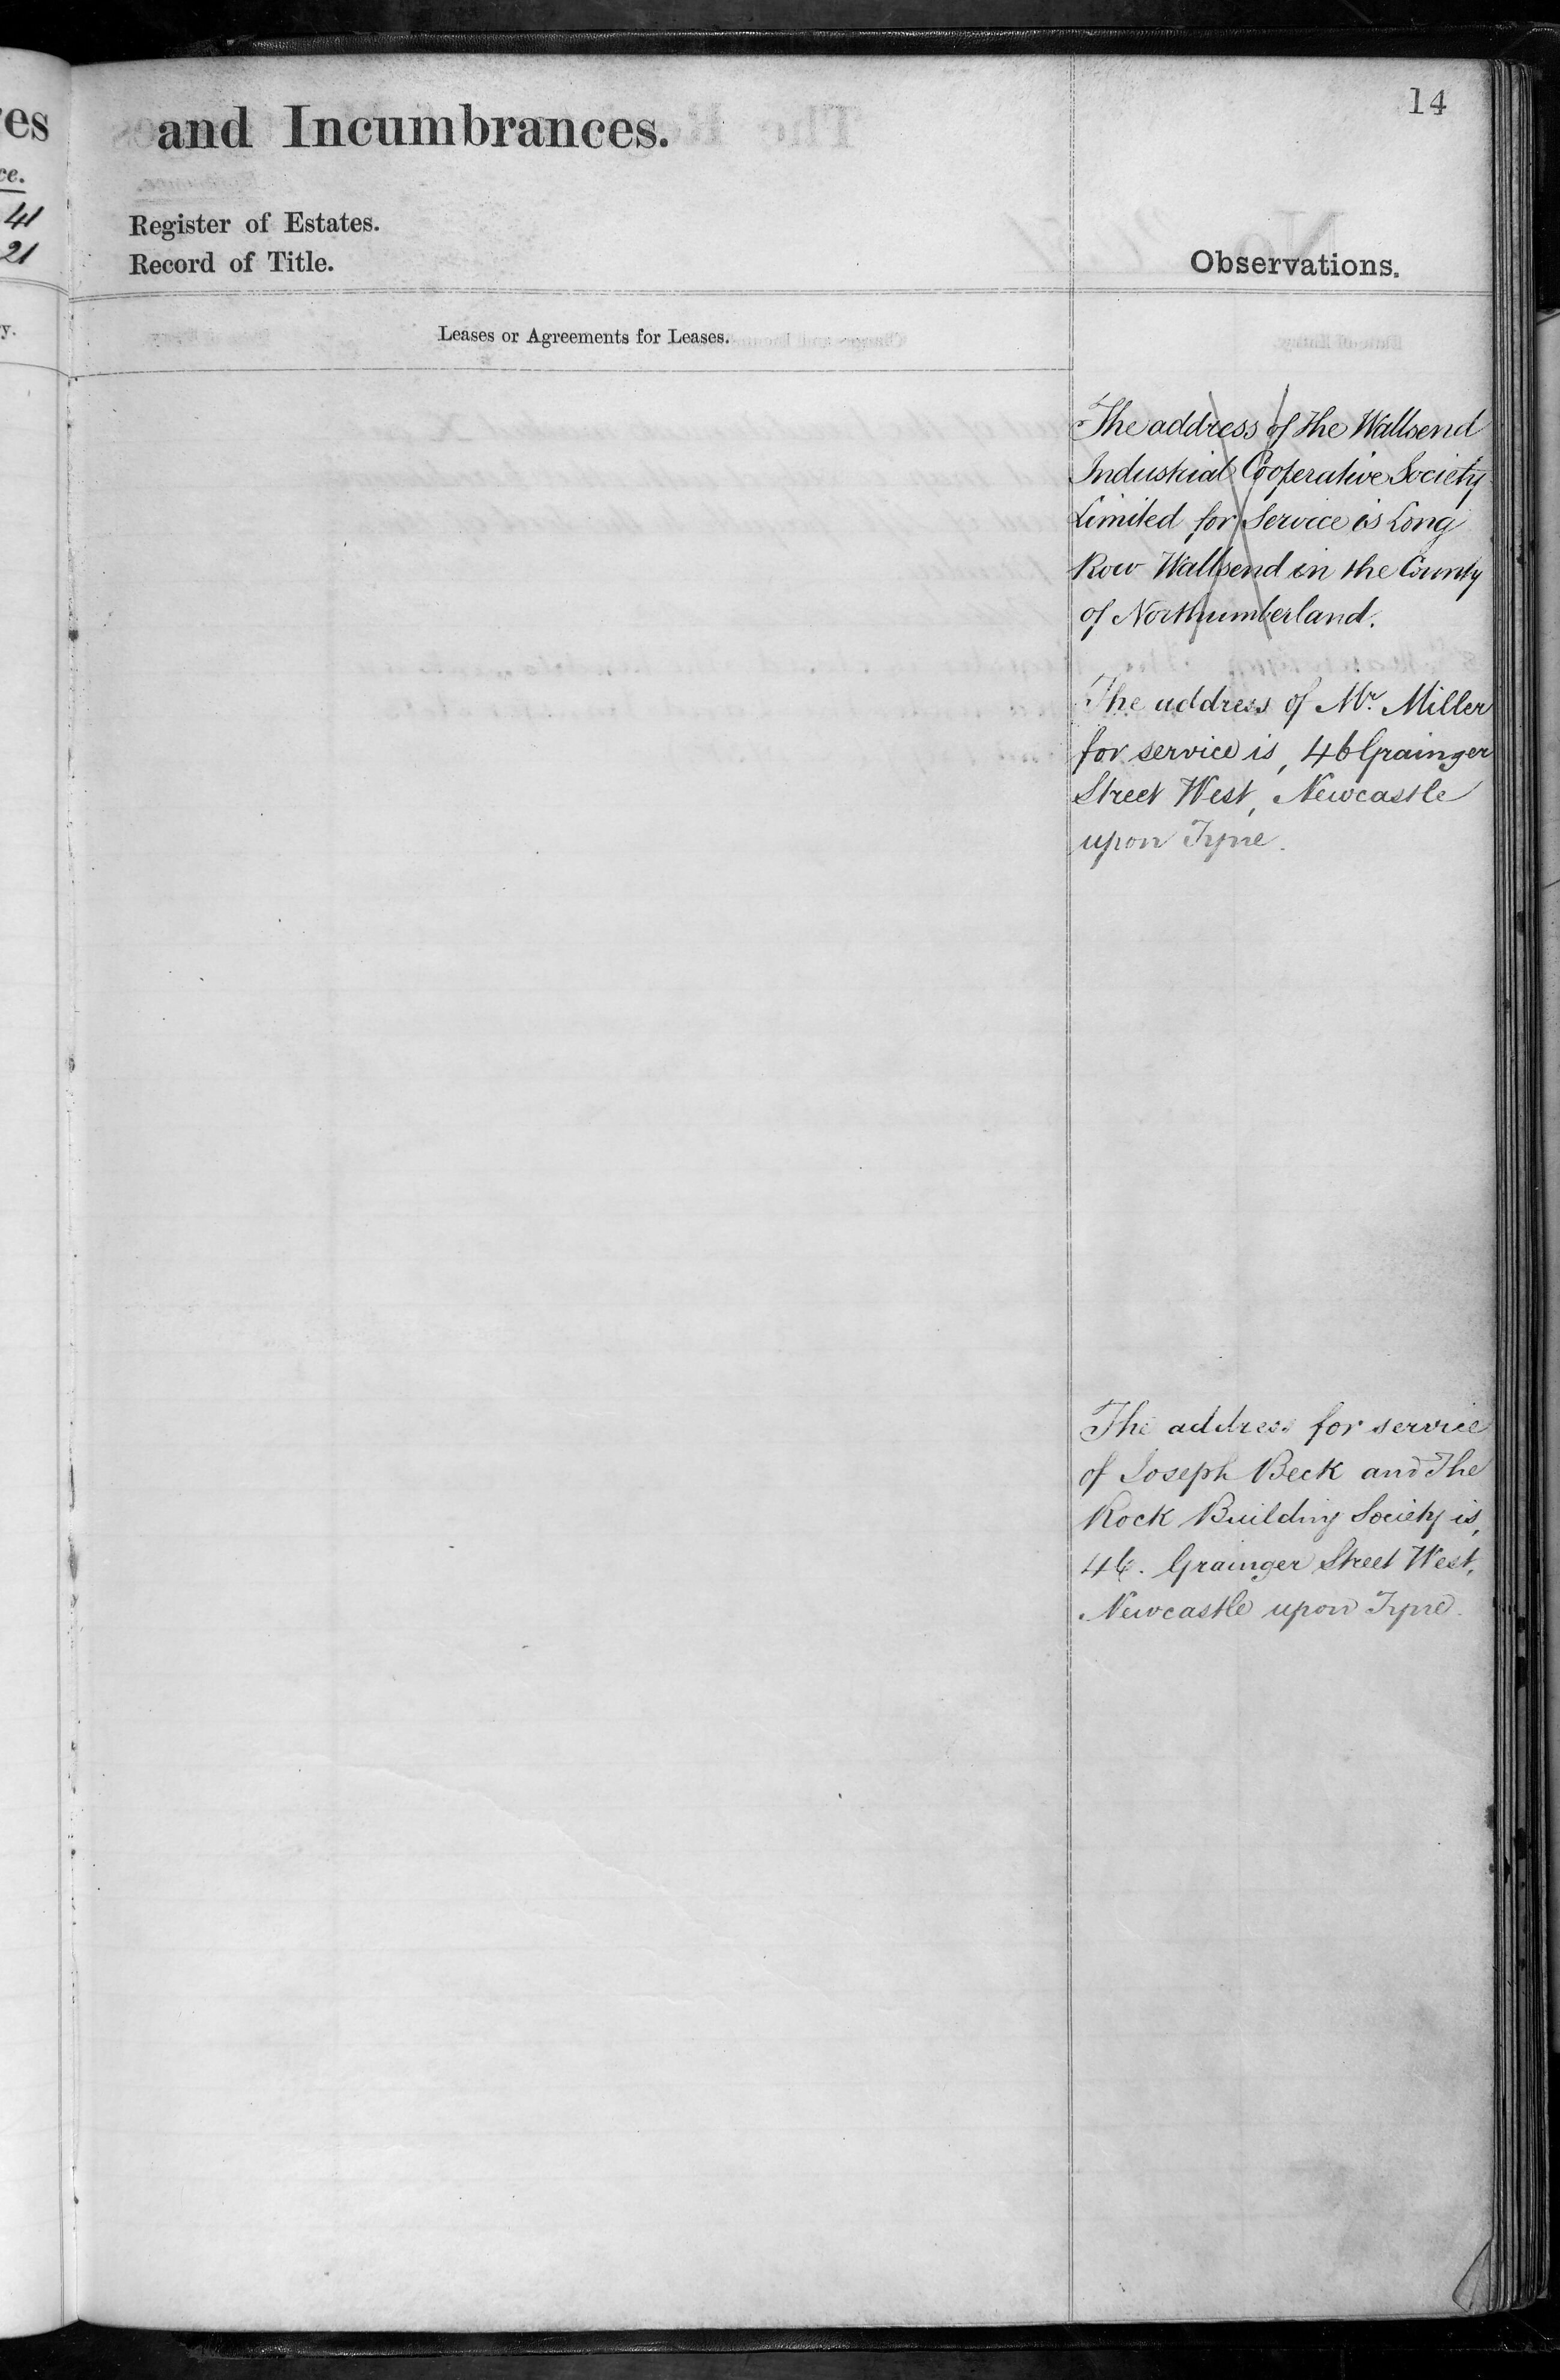 14
and Incumbrances.
Register of Estates.
Record of Title.
Observations.
Leases or Agreements for Leases.
The address of the Wallsend
Industrial Cooperative Society
Limited for Service is Long
Row Wallsend in the County
of Northumberland.
The address of Mr. Miller
for service is, 46 Grainger
Street West, Newcastle
upon Tyne.
The address for service
of Joseph Beck and The
Rock Building Society is,
46. Grainger Street West,
Newcastle upon Tyne.
es
ce.
41
21
y.